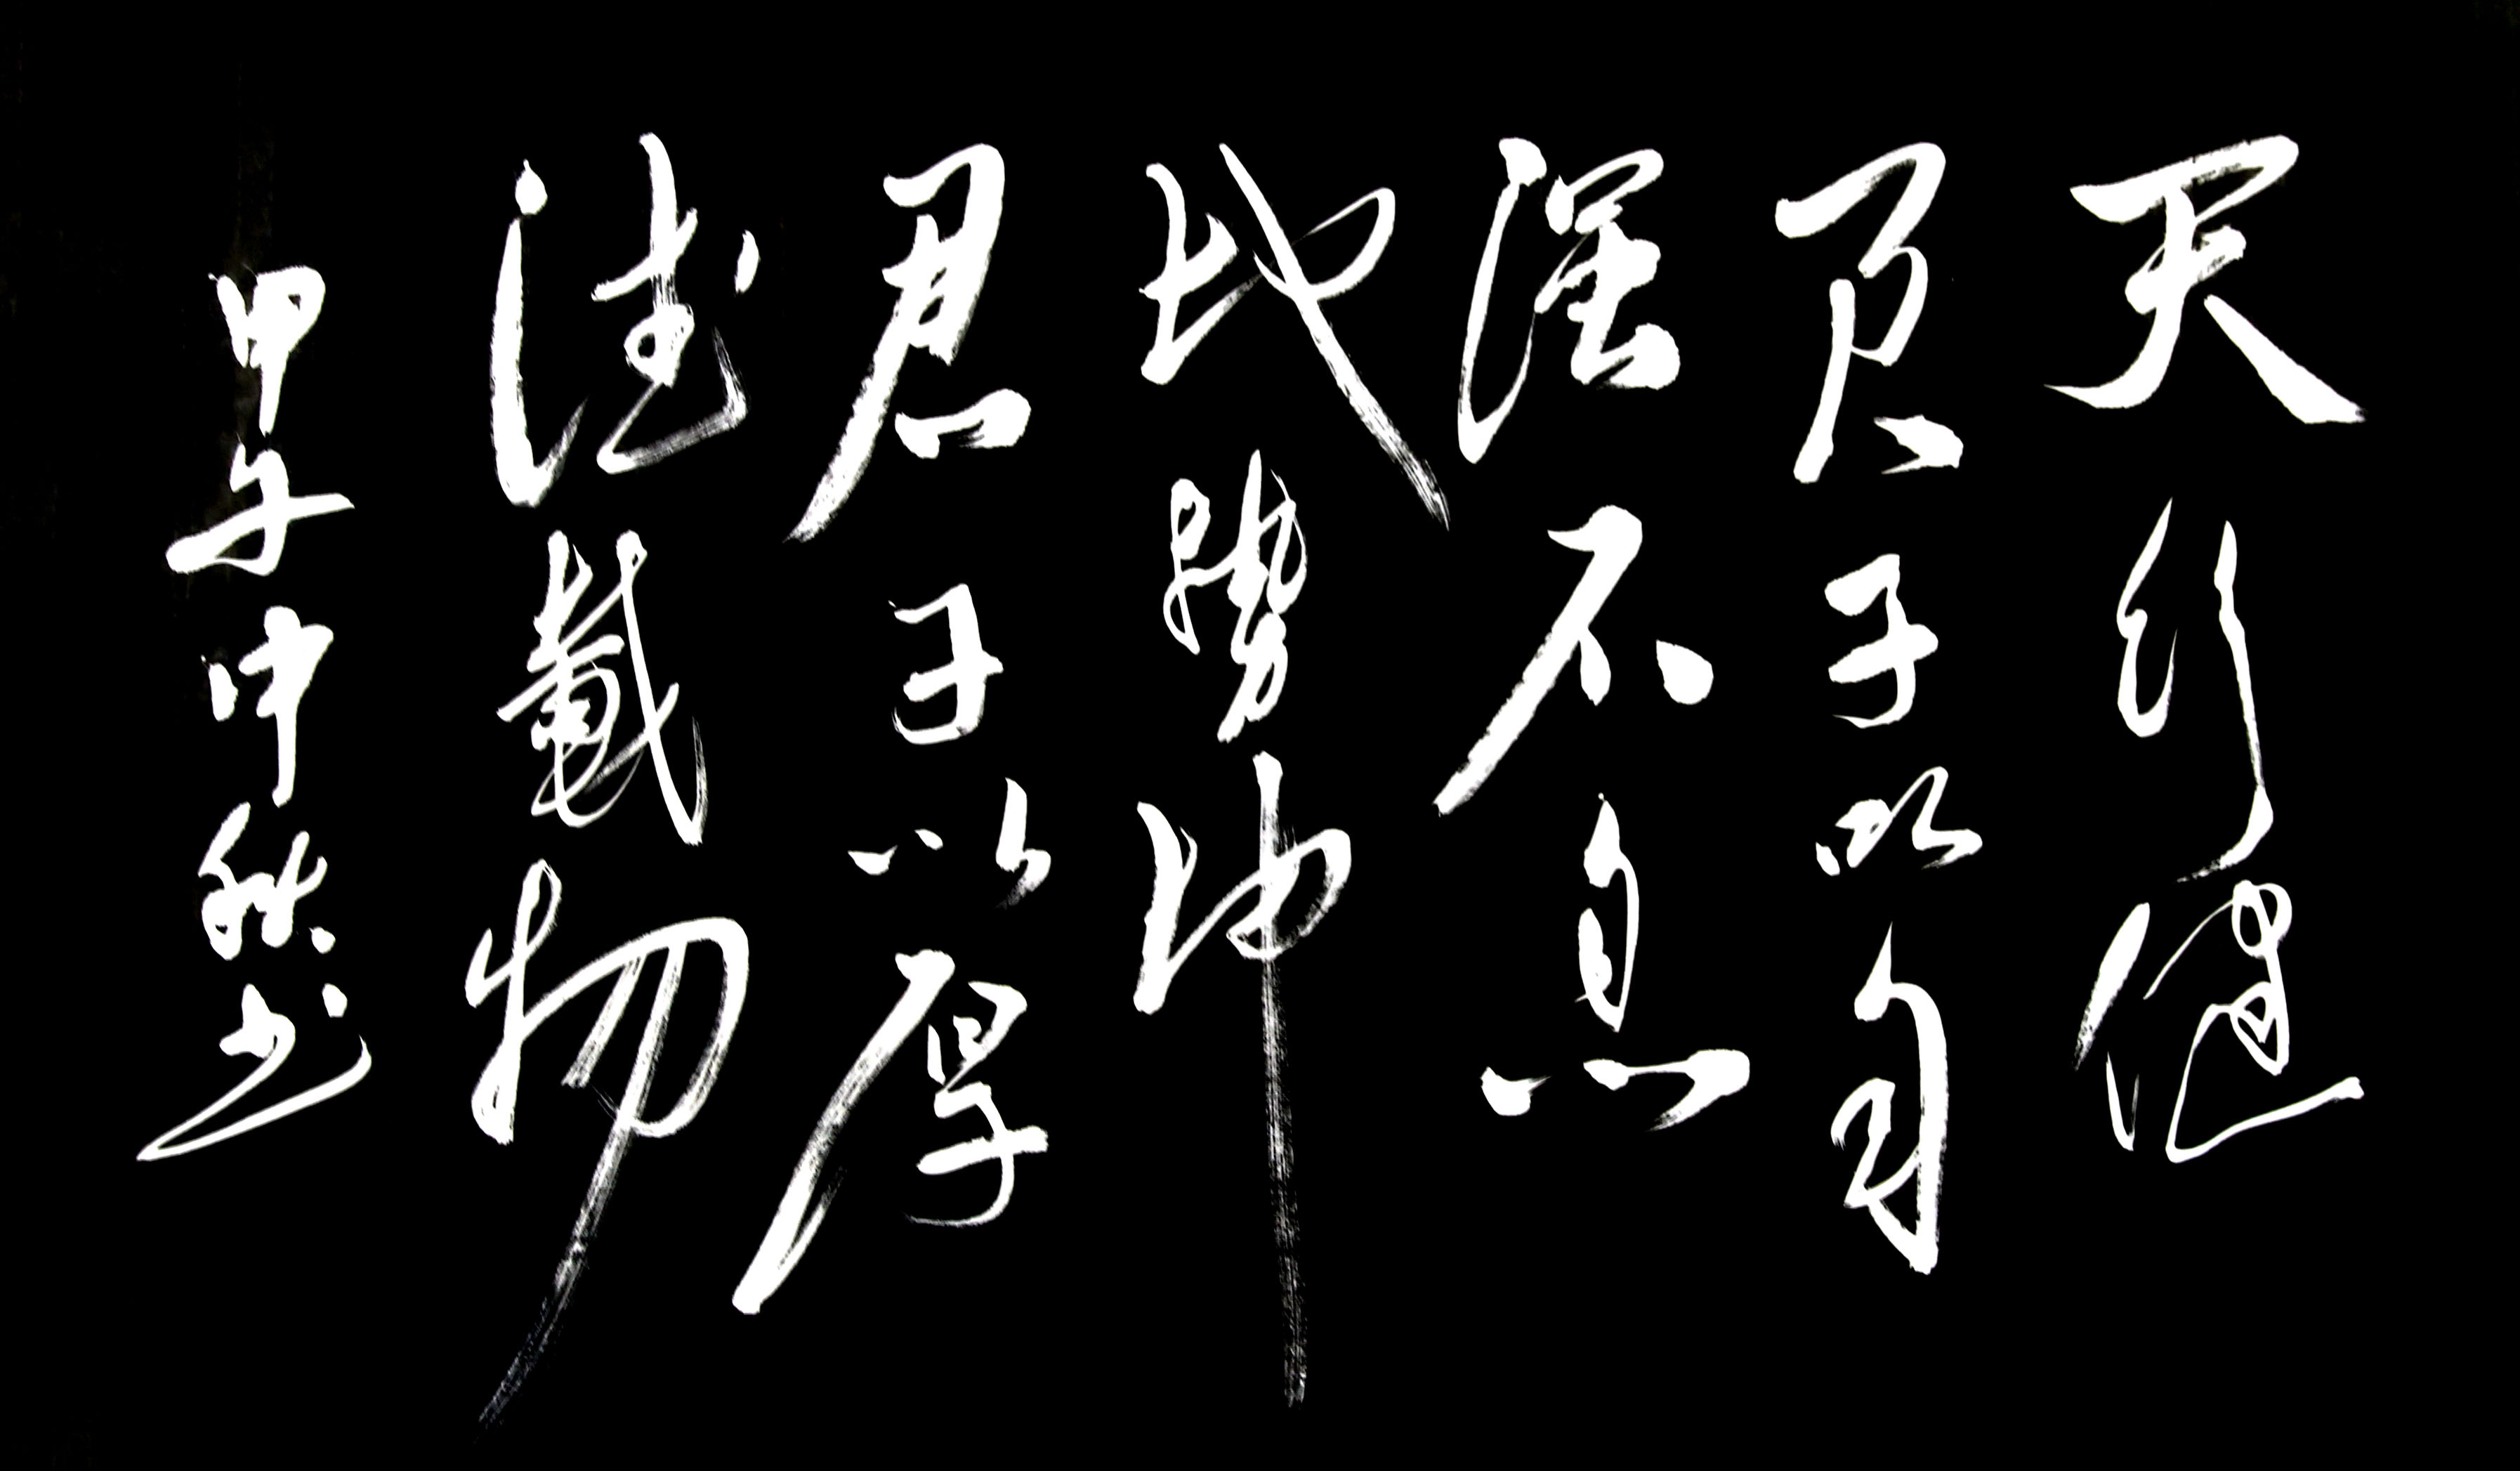 天行健
君子以自
强不息
地勢坤
君子以厚
德載物
甲午中秋书